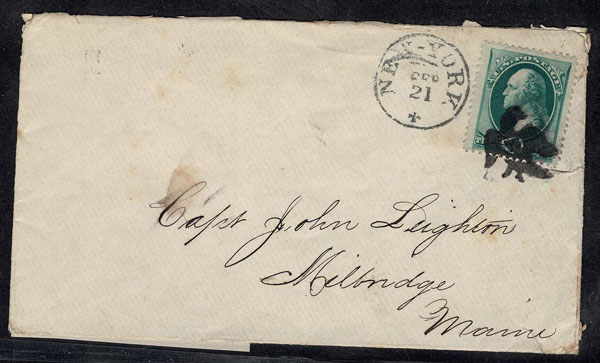 NEW-YORK
SEP
21
U.S. POSTAGE
Capt John Leighton
Milbridge
Maine